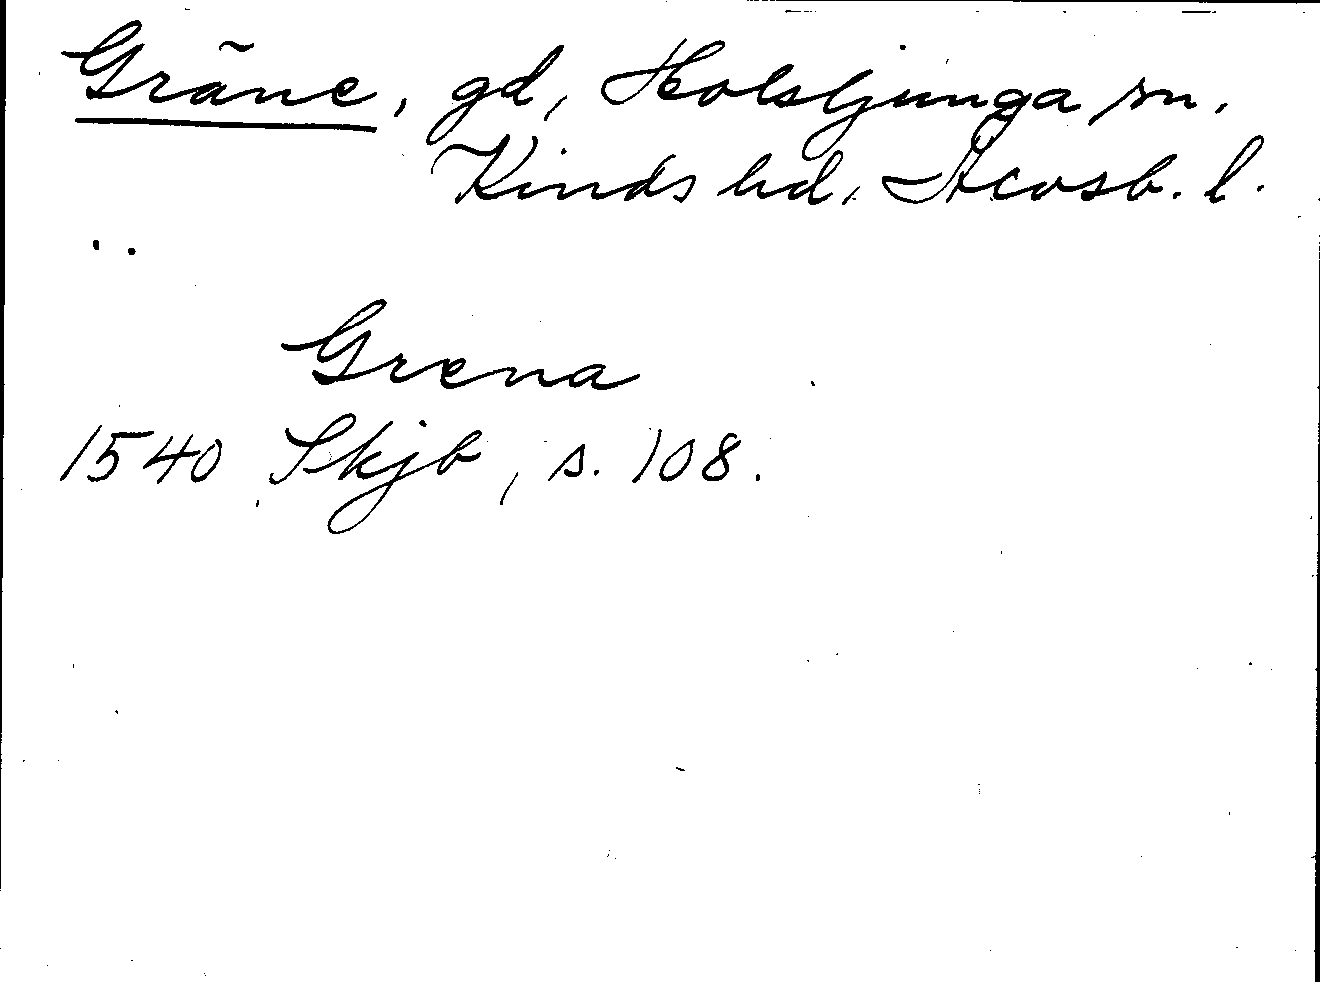 Gräne, gd, Holsljunga sn.
Kinds hd, Älvsb. l.
Grena
1540 Skjb, s. 108.